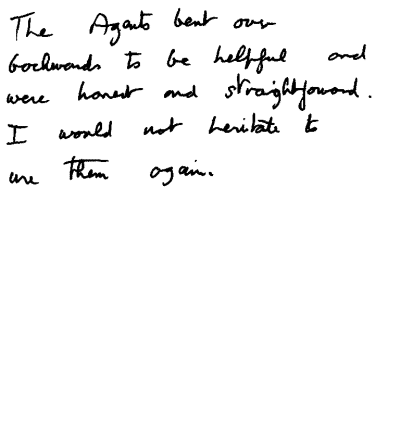 The Agents bent over
backwards to be helpful and
were honest and straightforward.
I would not hesitate to
use them again.